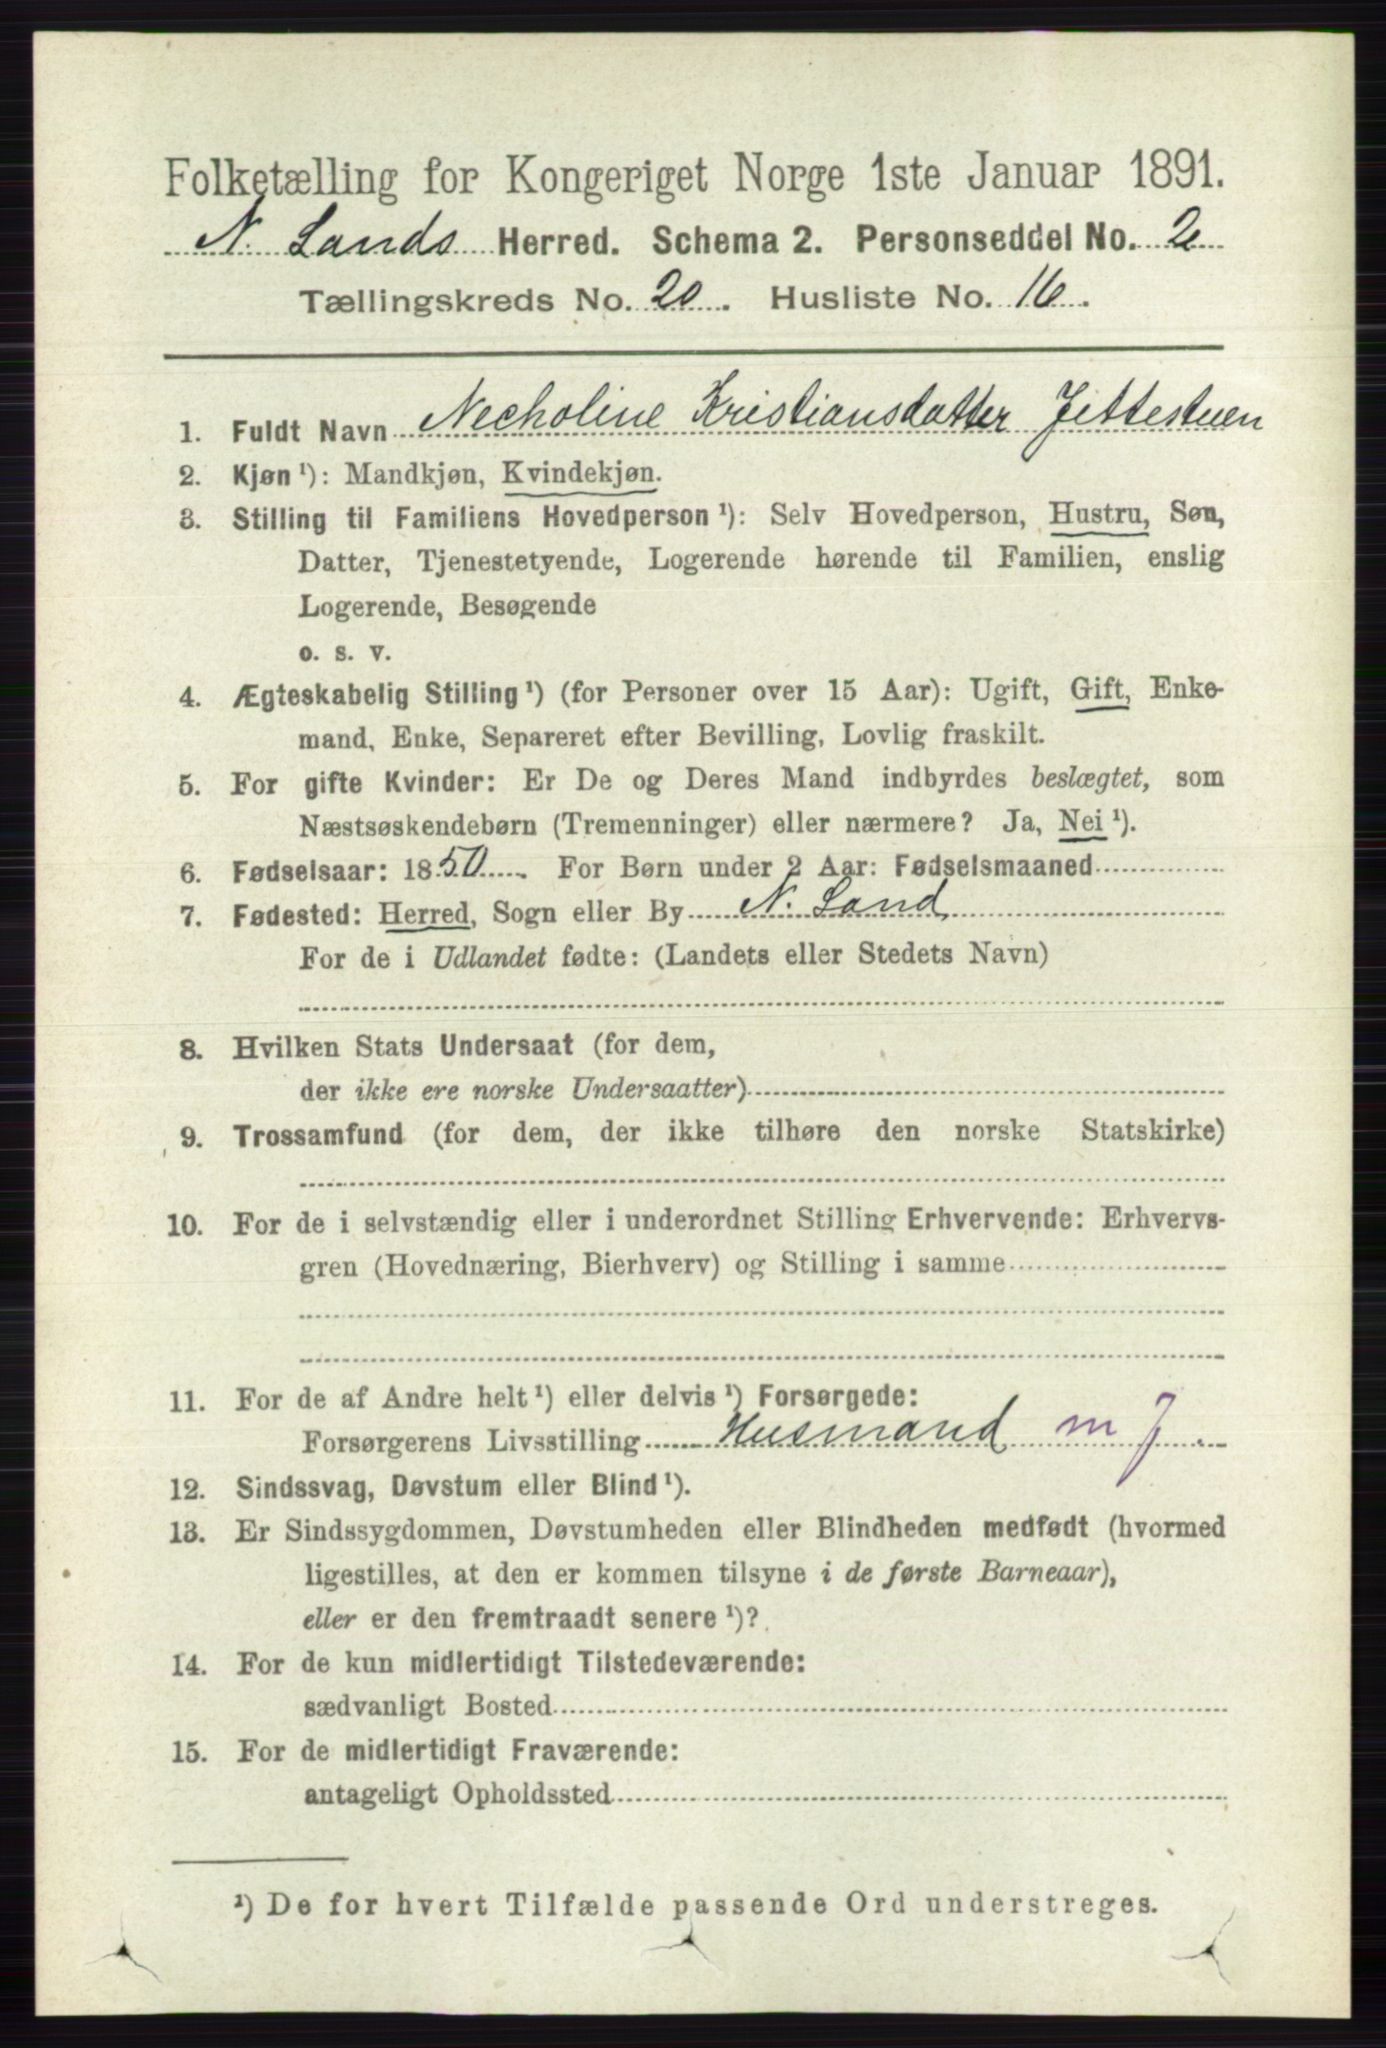 Folketælling for Kongeriget Norge 1ste Januar 1891.
N. Lands Herred. Schema 2. Personseddel No. 2
Tællingskreds No. 20. Husliste No. 16.
1. Fuldt Navn Necholine Kristiansdatter Jittestuen
2. Kjøn ¹): Mandkjøn, Kvindekjøn.
3. Stilling til Familiens Hovedperson ¹): Selv Hovedperson, Hustru, Søn,
Datter, Tjenestetyende, Logerende hørende til Familien, enslig
Logerende, Besøgende
o. s. v.
4. Ægteskabelig Stilling ¹) (for Personer over 15 Aar): Ugift, Gift, Enke-
mand, Enke, Separeret efter Bevilling, Lovlig fraskilt.
5. For gifte Kvinder: Er De og Deres Mand indbyrdes beslægtet, som
Næstsøskendebørn (Tremenninger) eller nærmere? Ja, Nei ¹).
6. Fødselsaar: 1850. For Børn under 2 Aar: Fødselsmaaned
7. Fødested: Herred, Sogn eller By N. Land
For de i Udlandet fødte: (Landets eller Stedets Navn)
8. Hvilken Stats Undersaat (for dem,
der ikke ere norske Undersaatter)
9. Trossamfund (for dem, der ikke tilhøre den norske Statskirke)
10. For de i selvstændig eller i underordnet Stilling Erhvervende: Erhvervs-
gren (Hovednæring, Bierhverv) og Stilling i samme
11. For de af Andre helt ¹) eller delvis ¹) Forsørgede:
Forsørgerens Livsstilling Husmand m J
12. Sindssvag, Døvstum eller Blind ¹).
13. Er Sindssygdommen, Døvstumheden eller Blindheden medfødt (hvormed
ligestilles, at den er kommen tilsyne i de første Barneaar),
eller er den fremtraadt senere ¹)?
14. For de kun midlertidigt Tilstedeværende:
sædvanligt Bosted
15. For de midlertidigt Fraværende:
antageligt Opholdssted
¹) De for hvert Tilfælde passende Ord understreges.